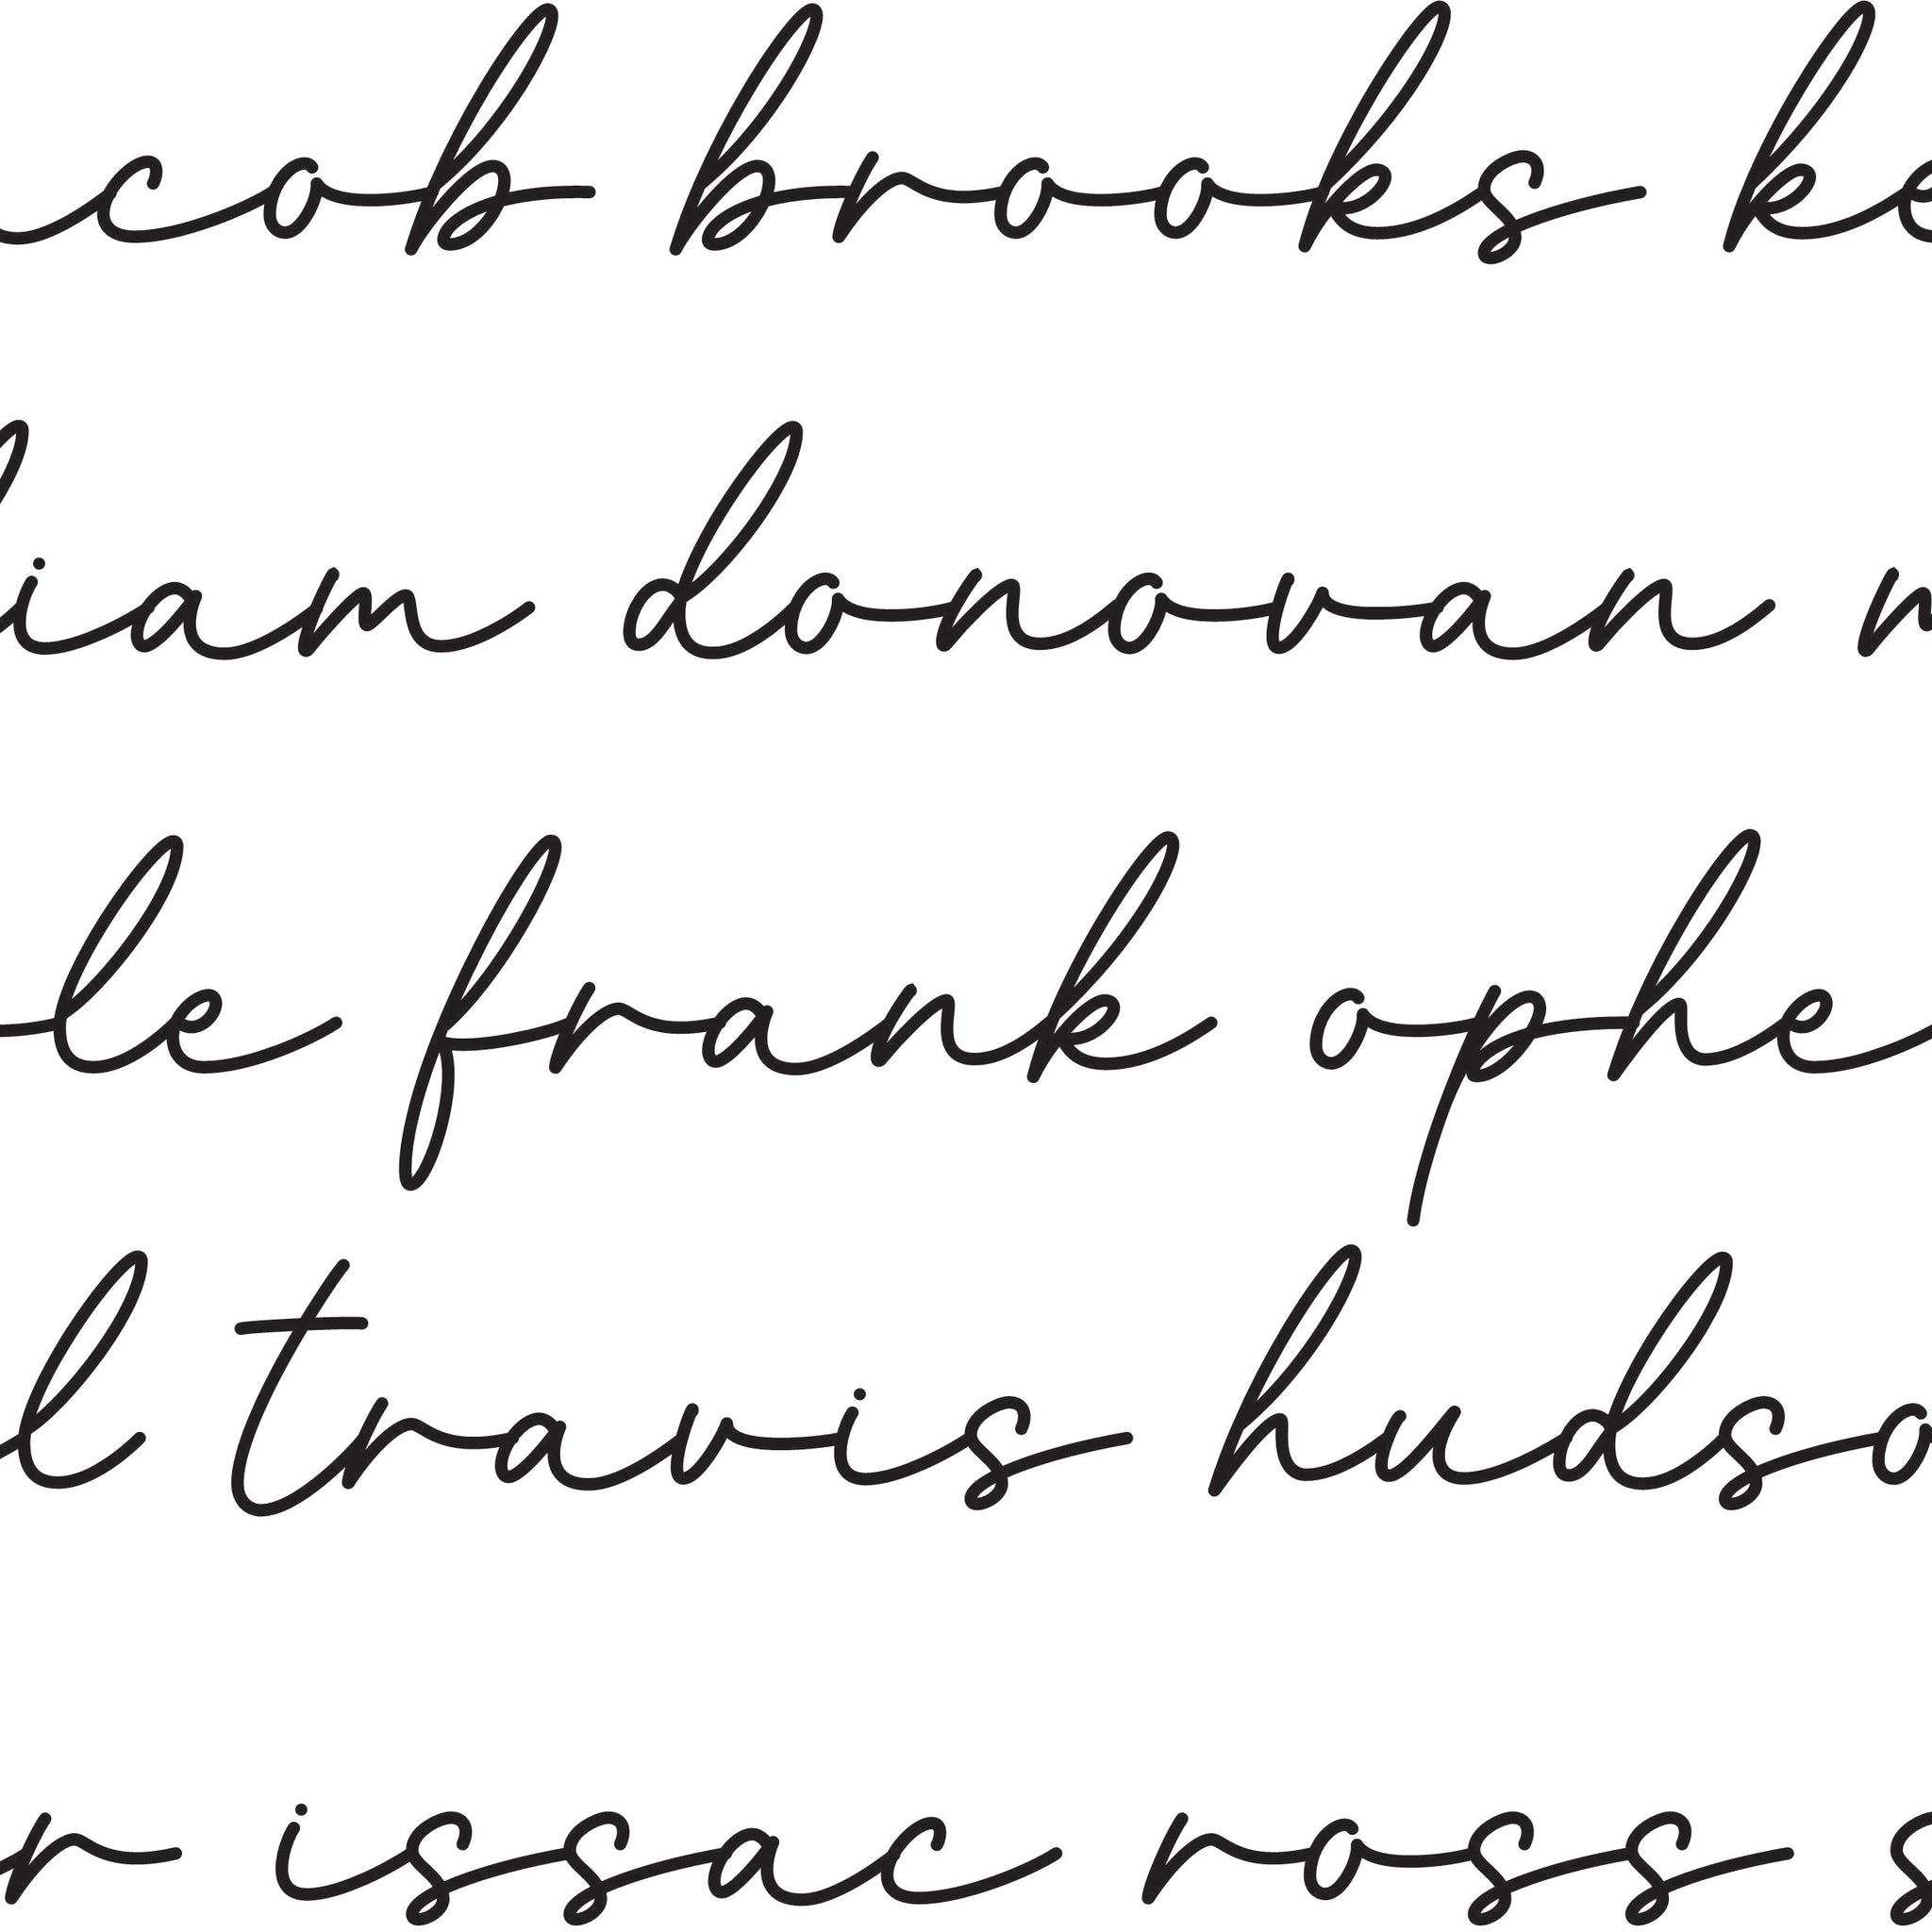 cob brooks ke
iam donovan
le frank ophe
l travis hudso
r issac ross s